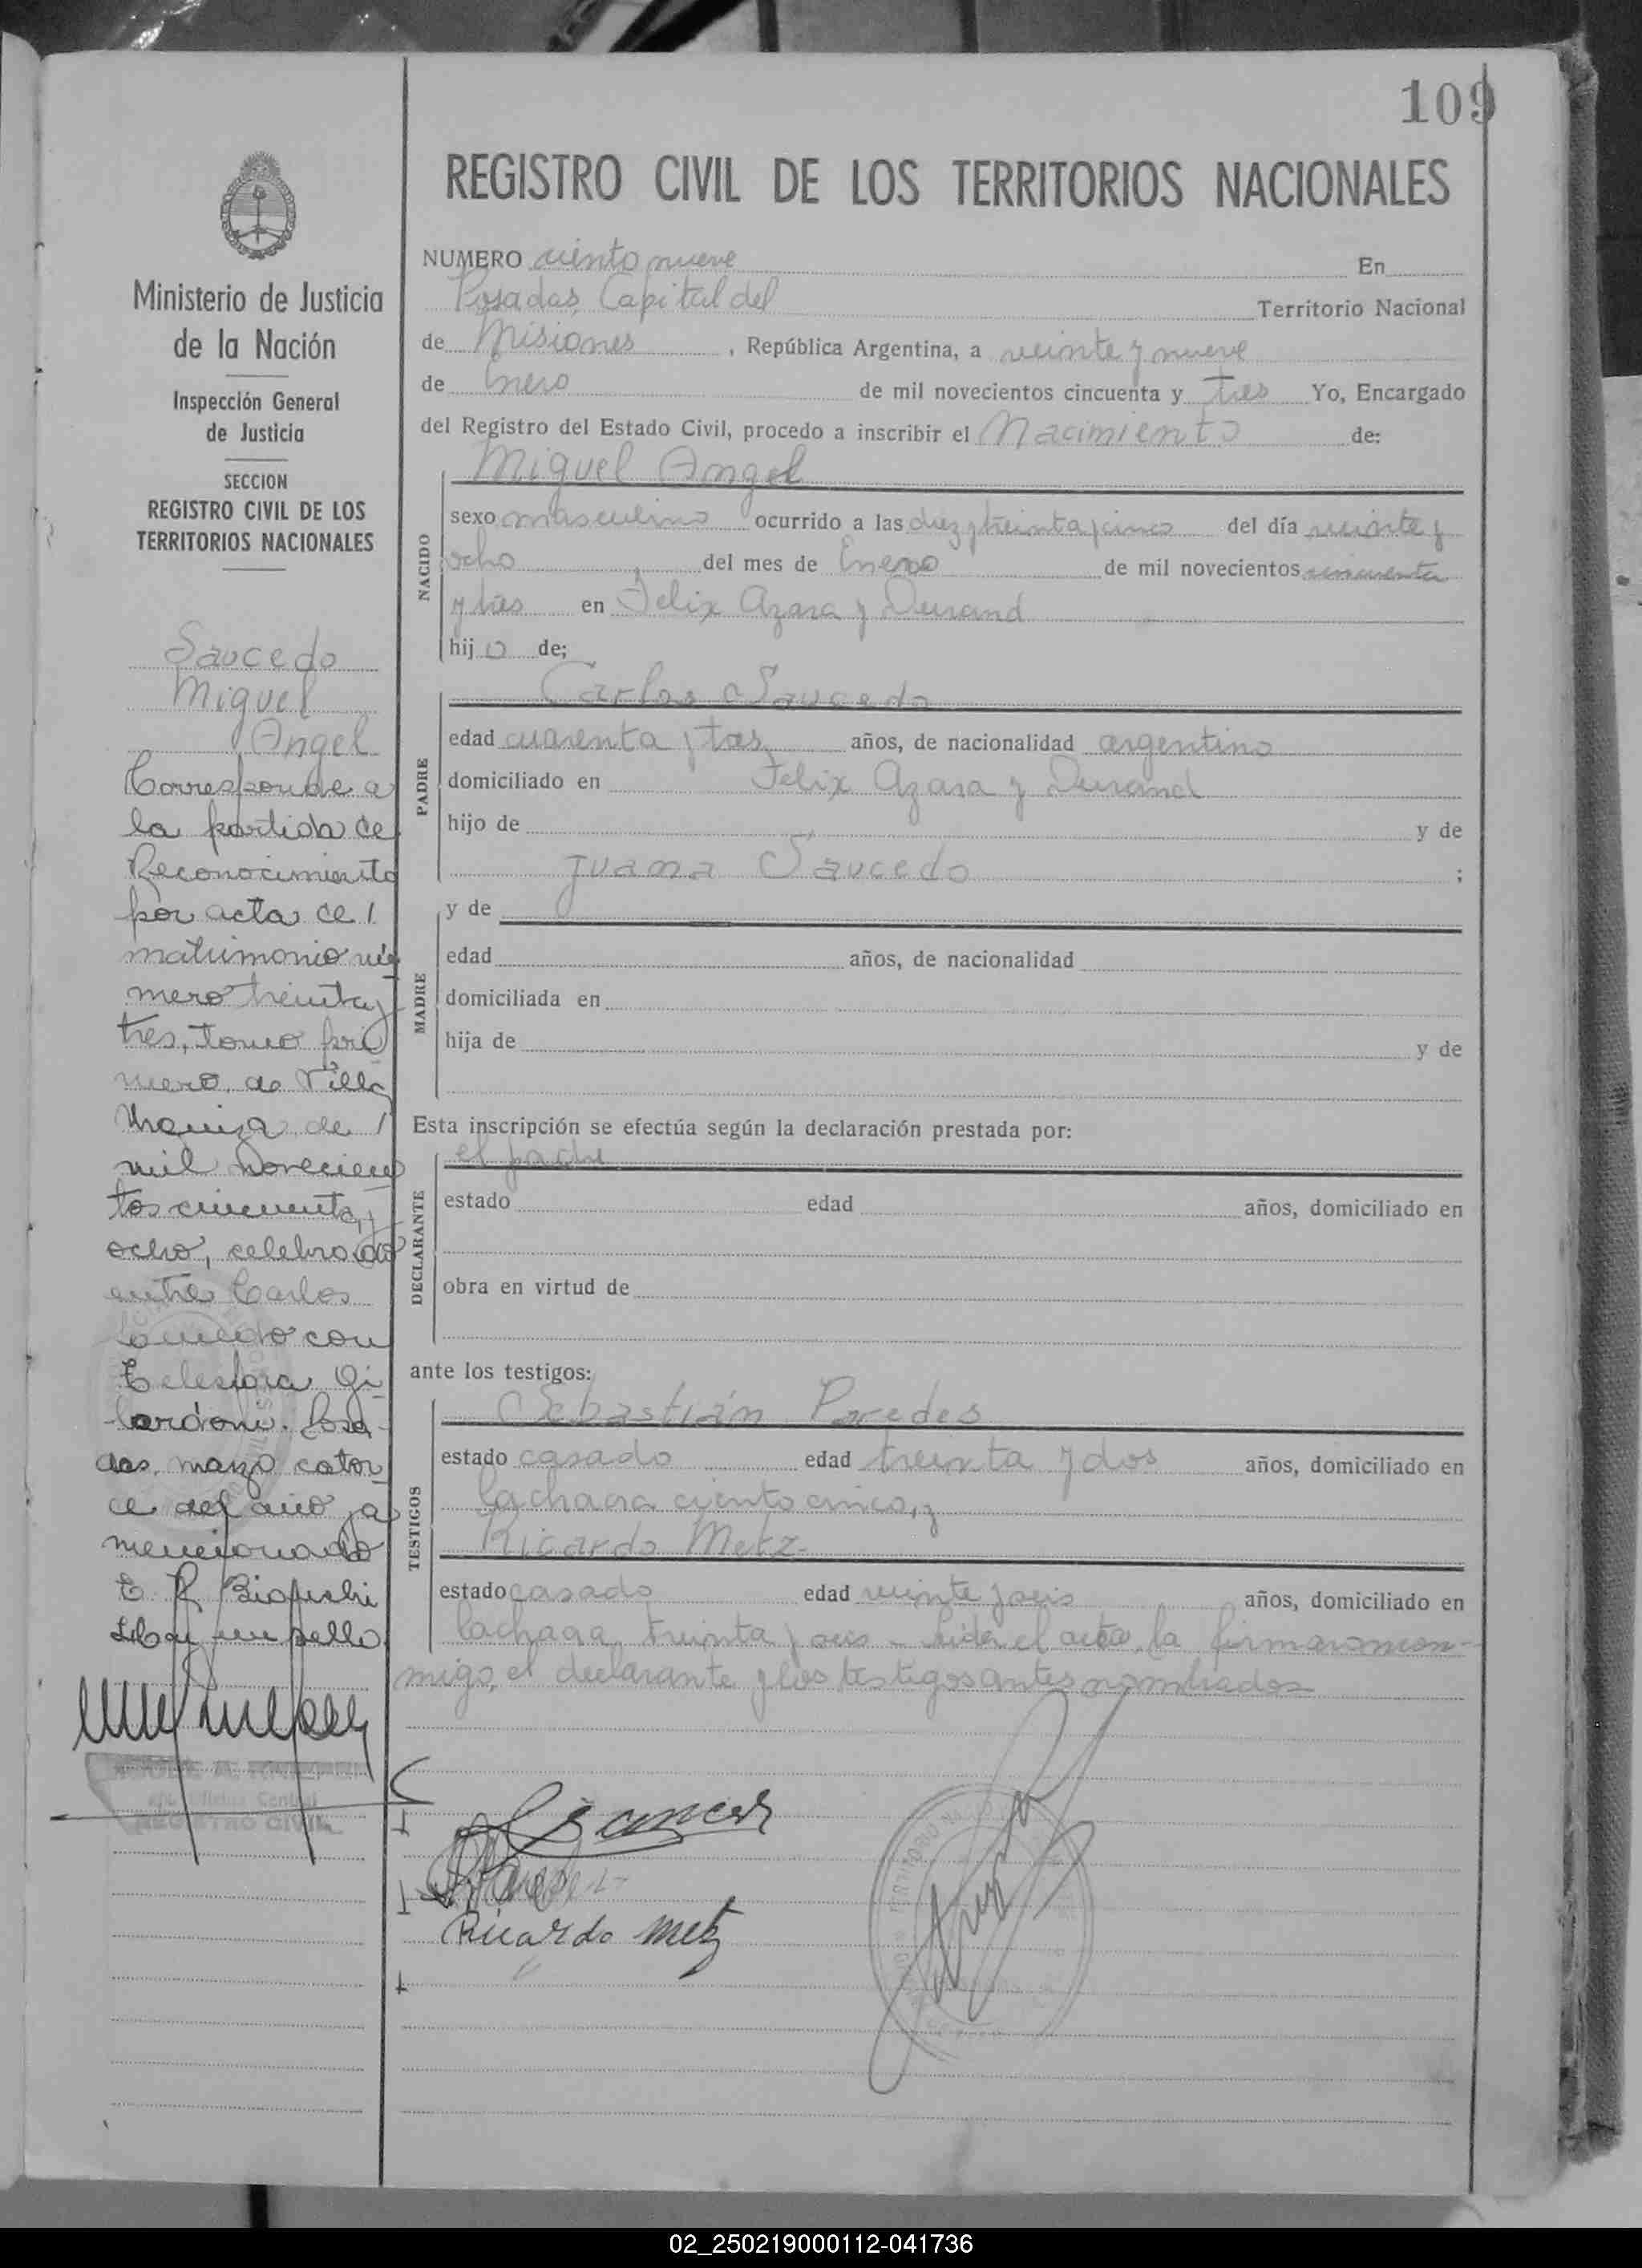 109
REGISTRO CIVIL DE LOS TERRITORIOS NACIONALES
Ministerio de Justicia
de la Nación
Inspección General
de Justicia
SECCION
REGISTRO CIVIL DE LOS
TERRITORIOS NACIONALES
Saucedo
Miguel
Angel
Corresponde a
la partida de
Reconocimiento
por acta de /
matrimonio nú-
mero treinta y
tres, tomo pri-
mero, de Villa
Urquiza de /
mil novecien-
tos cincuenta y
ocho, celebrado
entre Carlos
Saucedo con
Telesfora Gi-
lardoni. Posa-
das, marzo cator-
ce del año ya
mencionado
Hay un sello
Oficina Central
REGISTRO CIVIL
NUMERO ciento nueve En
Posadas, Capital del Territorio Nacional
de Misiones, República Argentina, a veinte y nueve
de Enero de mil novecientos cincuenta y tres Yo, Encargado
del Registro del Estado Civil, procedo a inscribir el Nacimiento de:
NACIDO
Miguel Angel
sexo masculino ocurrido a las diez y treinta y cinco del día veinte y
ocho del mes de Enero de mil novecientos cincuenta
y tres en Felix Azara y Durand
hijo de;
PADRE
Carlos Saucedo
edad cuarenta y tres años, de nacionalidad argentino
domiciliado en Felix Azara y Durand
hijo de y de
Juana Saucedo ;
MADRE
y de
edad años, de nacionalidad
domiciliada en
hija de y de
Esta inscripción se efectúa según la declaración prestada por:
DECLARANTE
el padre
estado edad años, domiciliado en
obra en virtud de
ante los testigos:
TESTIGOS
Sebastián Paredes
estado casado edad treinta y dos años, domiciliado en
la chacra ciento cinco, y
Ricardo Metz
estado casado edad veinte y seis años, domiciliado en
la chacra treinta y seis - Leida el acta, la firmaron con-
migo, el declarante y los testigos antes nombrados
Ricardo Metz
02_250219000112-041736